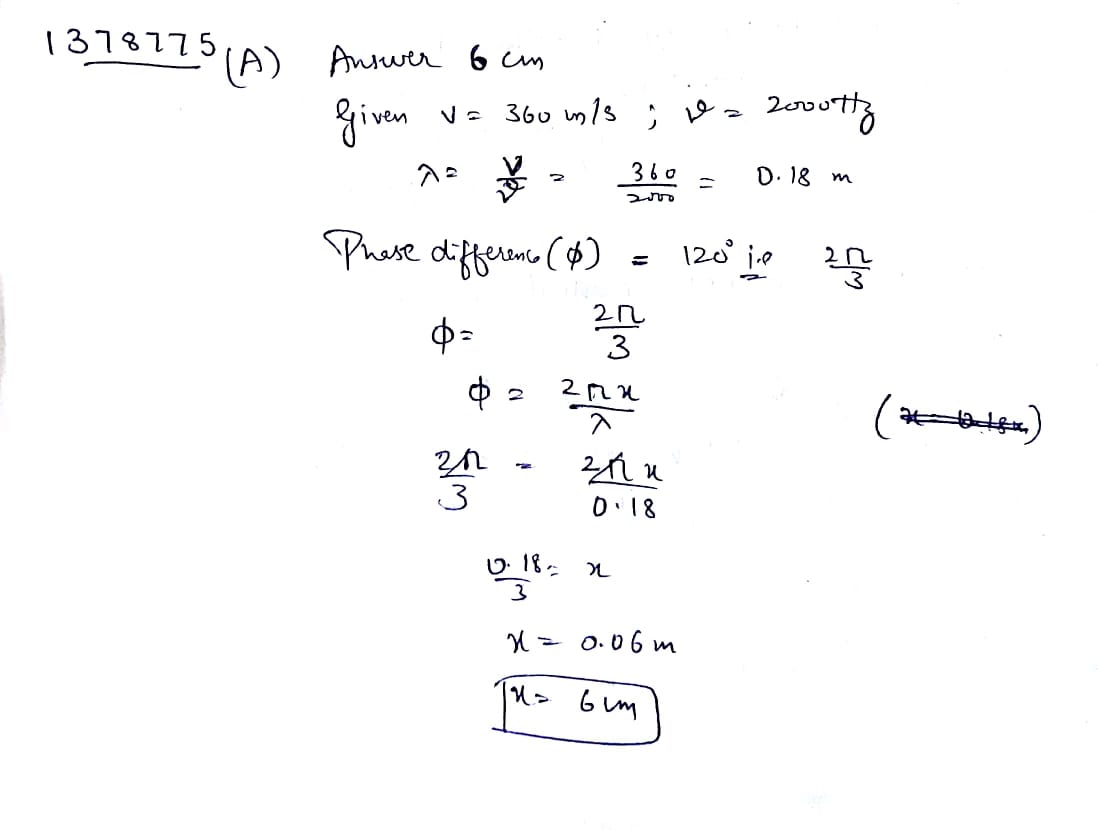 1378775 (A) Answer 6 cm
Given v = 360 m/s ; ν = 2000Hz
λ = v/ν = 360/2000 = 0.18 m
Phase difference (φ) = 120° i.e 2π/3
φ = 2π/3
φ = 2πx/λ
2π/3 = 2πx/0.18
0.18/3 = x
x = 0.06 m
x = 6 cm